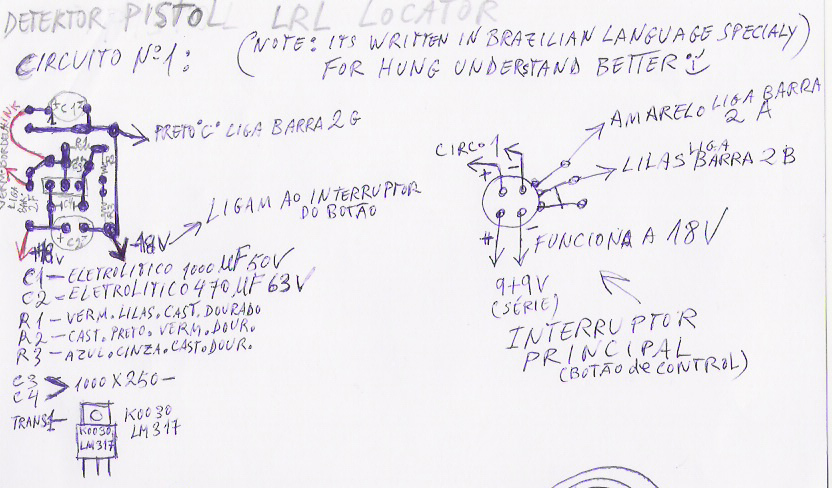 DETEKTOR PISTOL LRL LOCATOR
CIRCUITO Nº1:
(NOTE: ITS WRITTEN IN BRAZILIAN LANGUAGE SPECIALY)
FOR HUNG UNDERSTAND BETTER :)
PRETO "C" LIGA BARRA 2G
LIGAM AO INTERRUPTOR
DO BOTÃO
-18V
+18V
C1
C2
R1
C1 - ELETROLITICO 1000 µF 50V
C2 = ELETROLITICO 470 µF 63V
R1 - VERM. LILAS. CAST. DOURADO
R2 - CAST. PRETO. VERM. DOUR.
R3 - AZUL. CINZA. CAST. DOUR.
C3
C4 > 1000 X 250 -
TRANS1 -
K0030
LM317
K0030
LM317
CIRCO.1
+ -
AMARELO LIGA BARRA
2 A
LILAS LIGA BARRA 2B
FUNCIONA A 18V
9+9V
(SÉRIE)
INTERRUPTOR
PRINCIPAL
(BOTÃO de CONTROL)